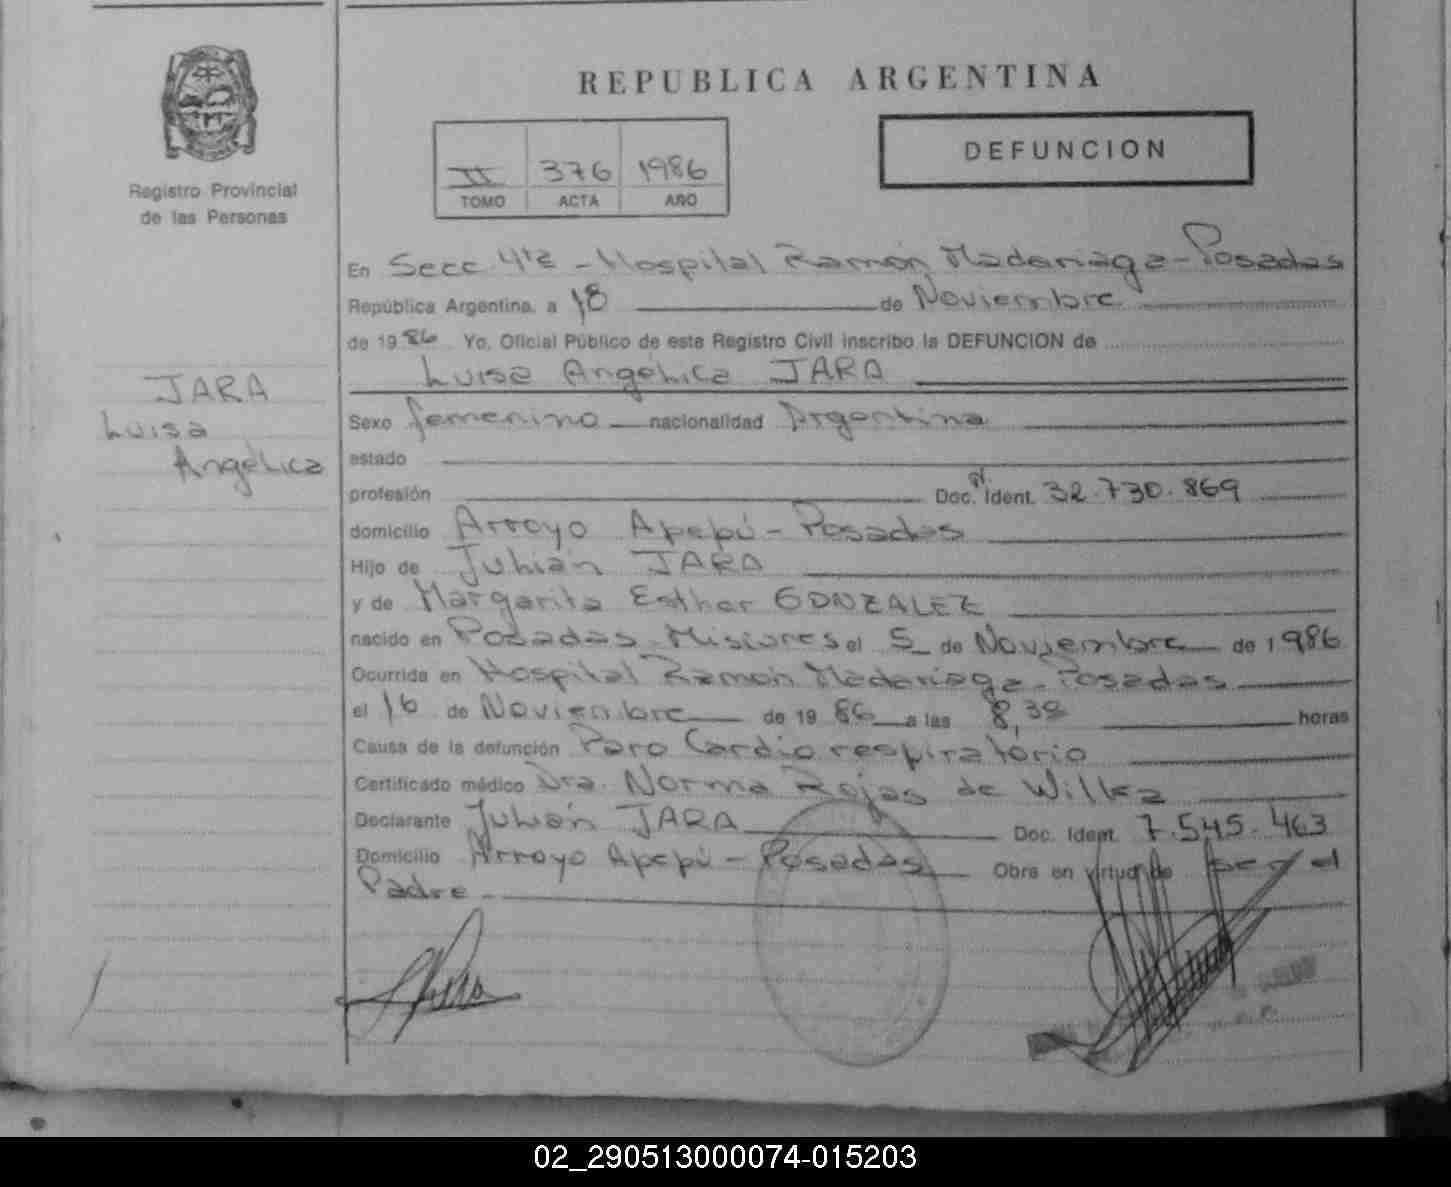 REPUBLICA ARGENTINA
DEFUNCION
Registro Provincial
de las Personas
II 376 1986
TOMO ACTA AÑO
En Secc. 4ta - Hospital Ramón Madariaga - Posadas
República Argentina, a 18 de Noviembre
de 1986 Yo, Oficial Público de este Registro Civil inscribo la DEFUNCION de
Luisa Angélica JARA
JARA
Luisa
Angélica
Sexo femenino nacionalidad Argentina
estado
profesión Doc. Ident. 32.730.869
domicilio Arroyo Apepú - Posadas
Hijo de Julián JARA
y de Margarita Esther GONZALEZ
nacido en Posadas - Misiones el 5 de Noviembre de 1986
Ocurrida en Hospital Ramón Madariaga - Posadas
el 16 de Noviembre de 1986 a las 8,38 horas
Causa de la defunción Paro Cardio respiratorio
Certificado médico Dra. Norma Rojas de Wilka
Declarante Julián JARA Doc. Ident. 7.545.463
Domicilio Arroyo Apepú - Posadas Obra en virtud de ser el
Padre
02_290513000074-015203